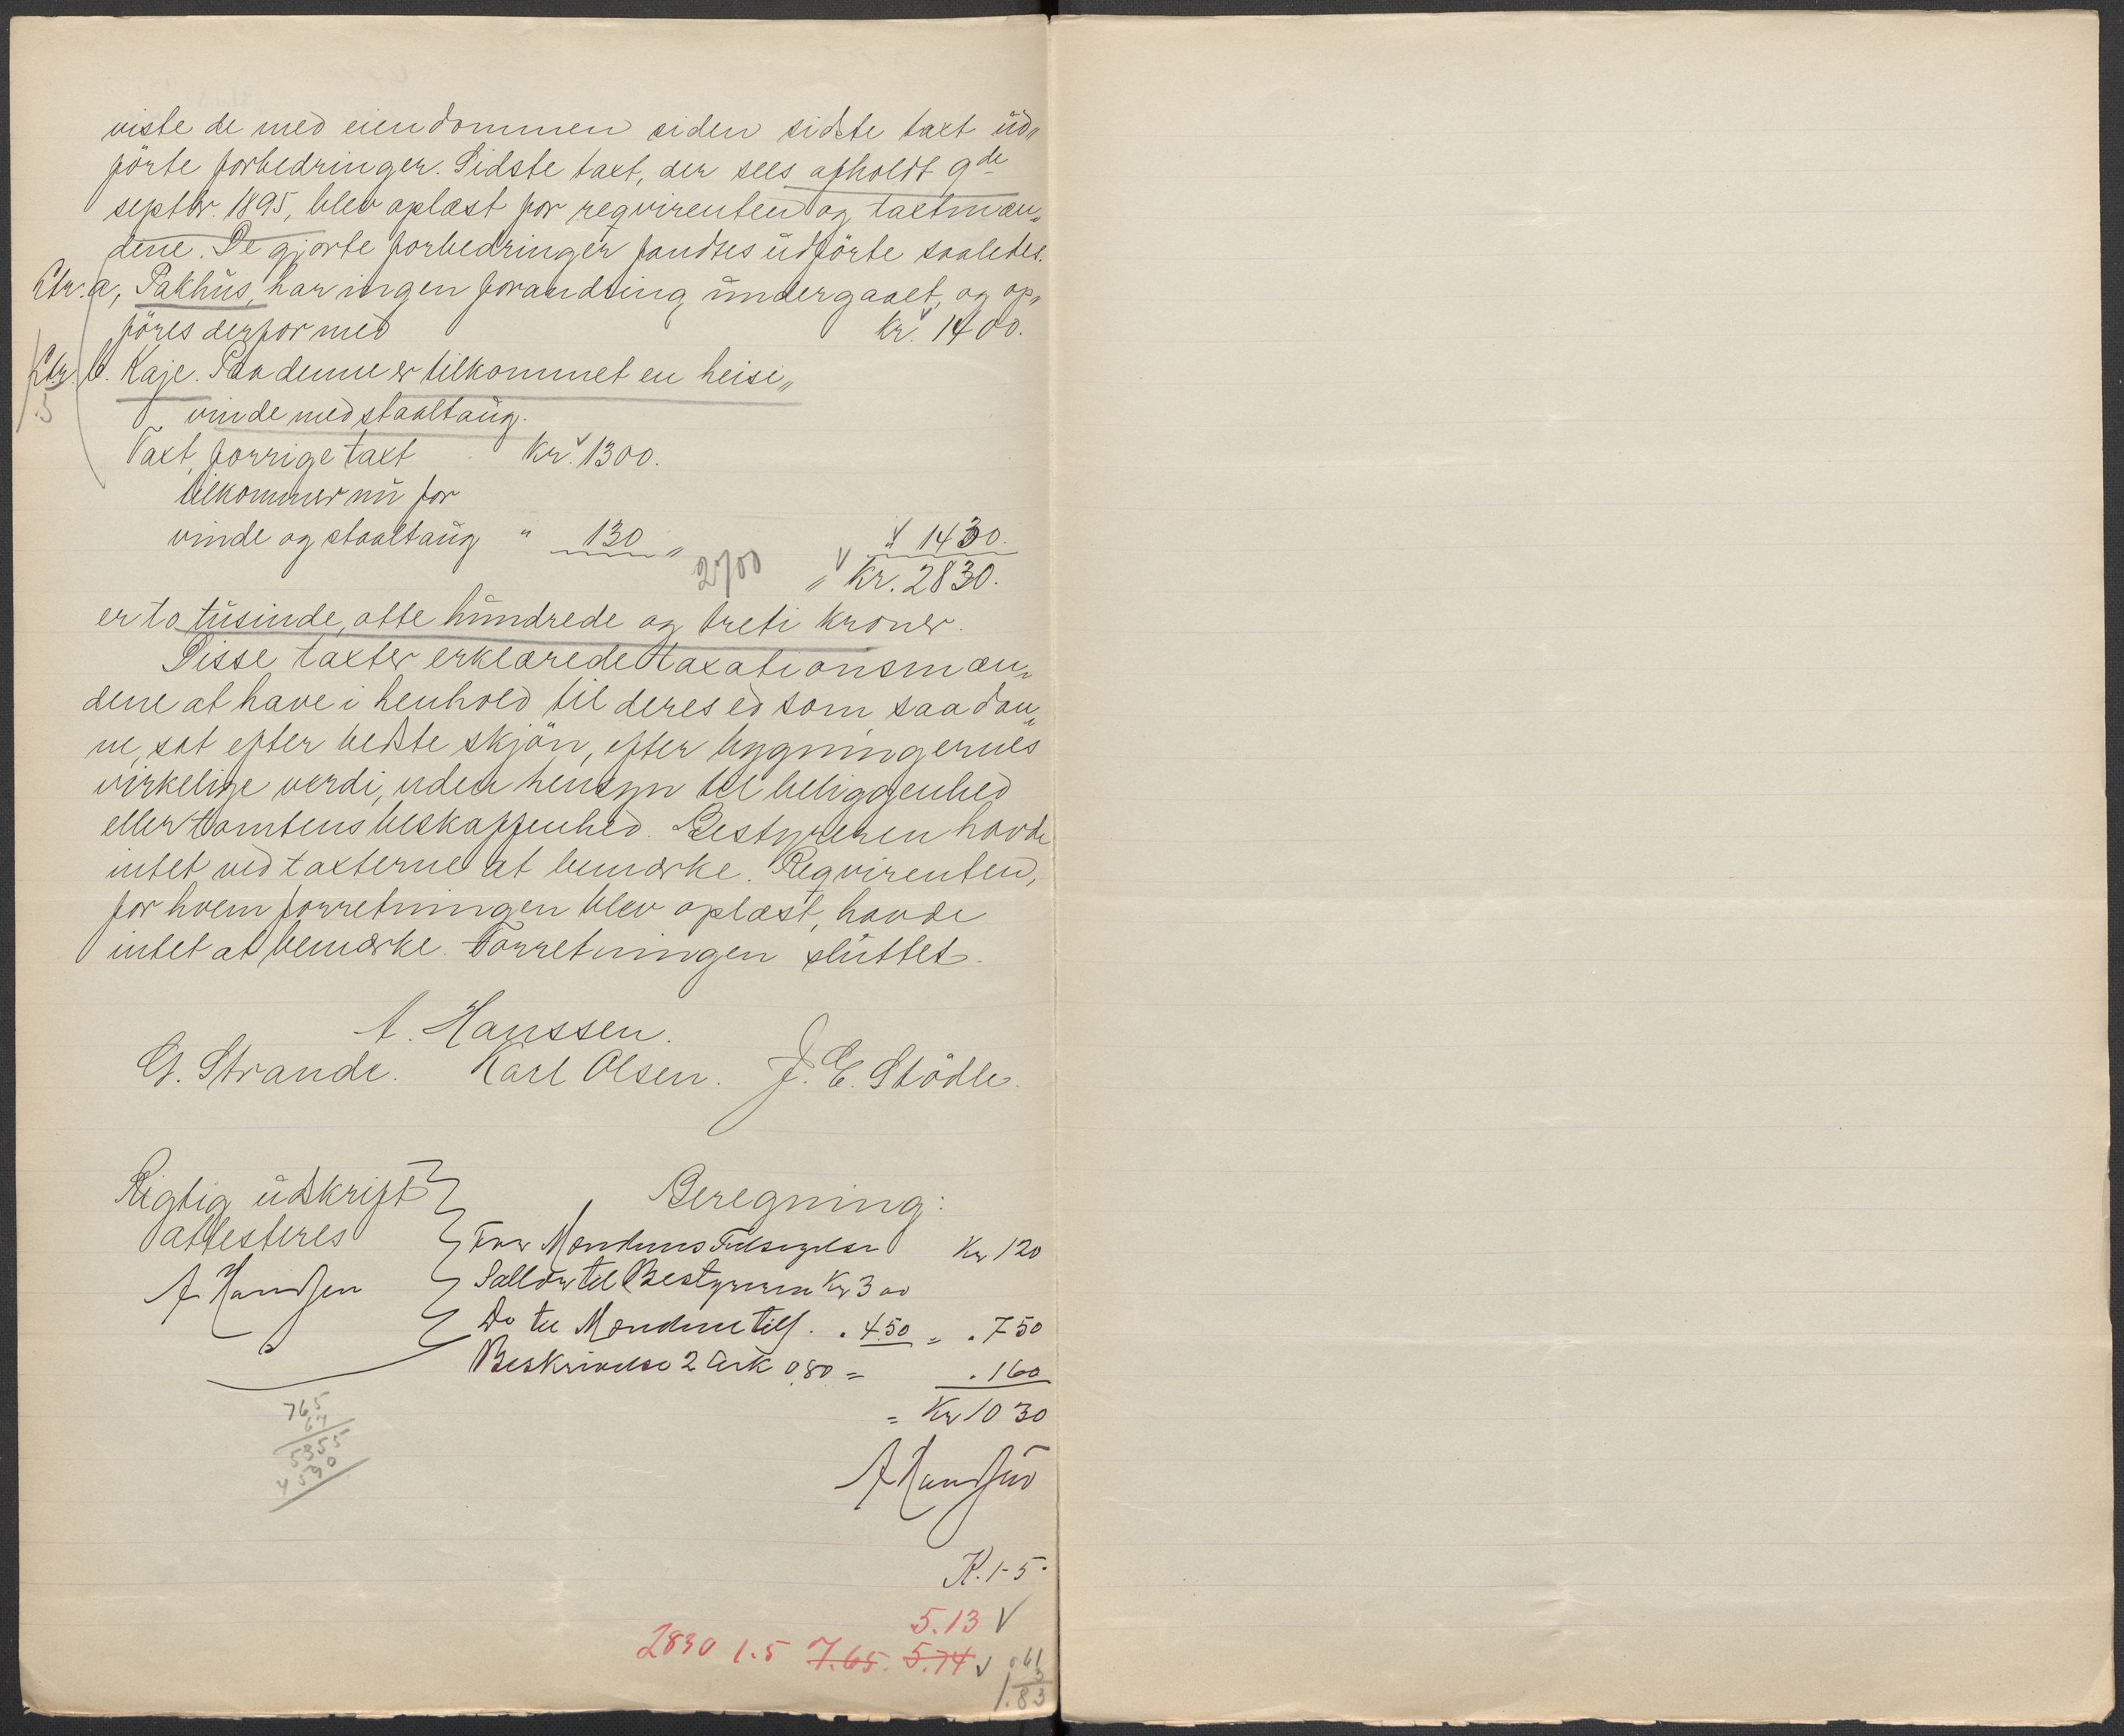 viste de med eiendommen siden sidste taxt üd„
förte forbedringer. Sidste taxt, der sees afholdt 9de
septbr. 1895, blev oplæst for reqvirenten og taxtmæn„
dene. De gjorte forbedringer fandtes üdförte saaledes.
Ltr. a, Pakhüs, har ingen forandring ündergaaet, og op„
föres derfor med kr. 1400.
Ltr. b. Kaje. Paa denne er tilkommet en heise„
vinde med staaltaüg.
Taxt, forrige taxt Kr. 1300.
tilkommer nü for
vinde og staaltaüg " 130 " " 1430.
2700 " Kr. 2830.
er to tüsinde, otte hündrede og treti kroner.
Disse taxter erklærede taxationsmæn„
dene at have i henhold til deres ed som saadan„
ne, sat efter bedste skjön, efter bygningernes
virkelige verdi, uden hensyn til beliggenhed
eller tomtens beskaffenhed. Bestyreren havde
intet ved taxterne at bemærke. Reqvirenten,
for hvem forretningen blev oplæst, havde
intet at bemærke. Forretningen slüttet.
A. Hanssen.
G. Strande. Karl Olsen. J. E. Stödle.
Rigtig üdskrift Beregning:
attesteres
For Mændenes Tilsigelse Kr 120
A Hanssen
Sallær til Bestyreren Kr 3 00
Do til Mændene tils. . 4.50 = . 750
Beskrivelse 2 Ark 0.80 = . 160
= Kr 10 30
A Hanssen
765
67
5355
4590
K. 1-5.
5.13 V
2830 1.5 7.65. 5.74 V .61
3
1.83